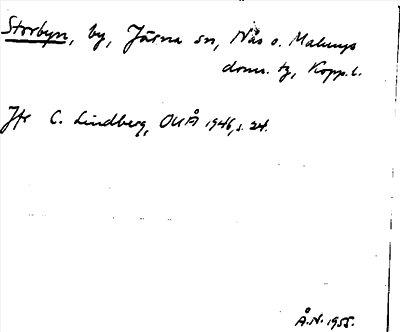 Storbyn, by, Järna sn, Nås o. Malungs
doms. tg, Kopp.l.
Jfr C. Lindberg, OUÅ 1946, s. 24.
Å.N. 1955.